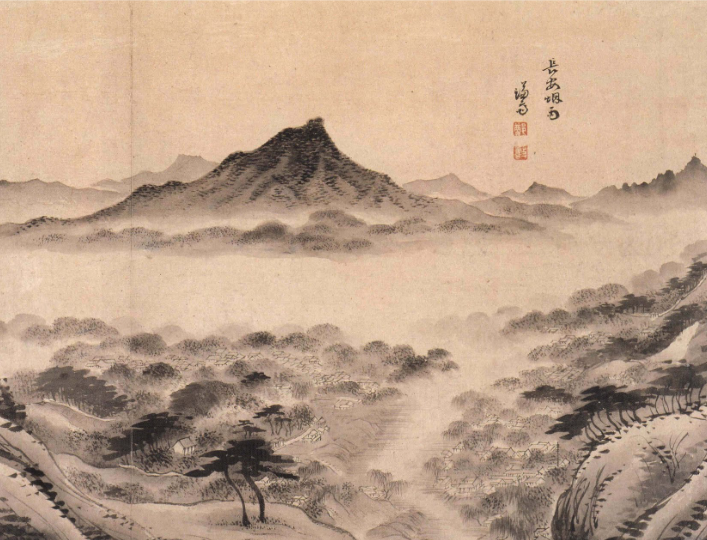 長安烟雨
謙齋